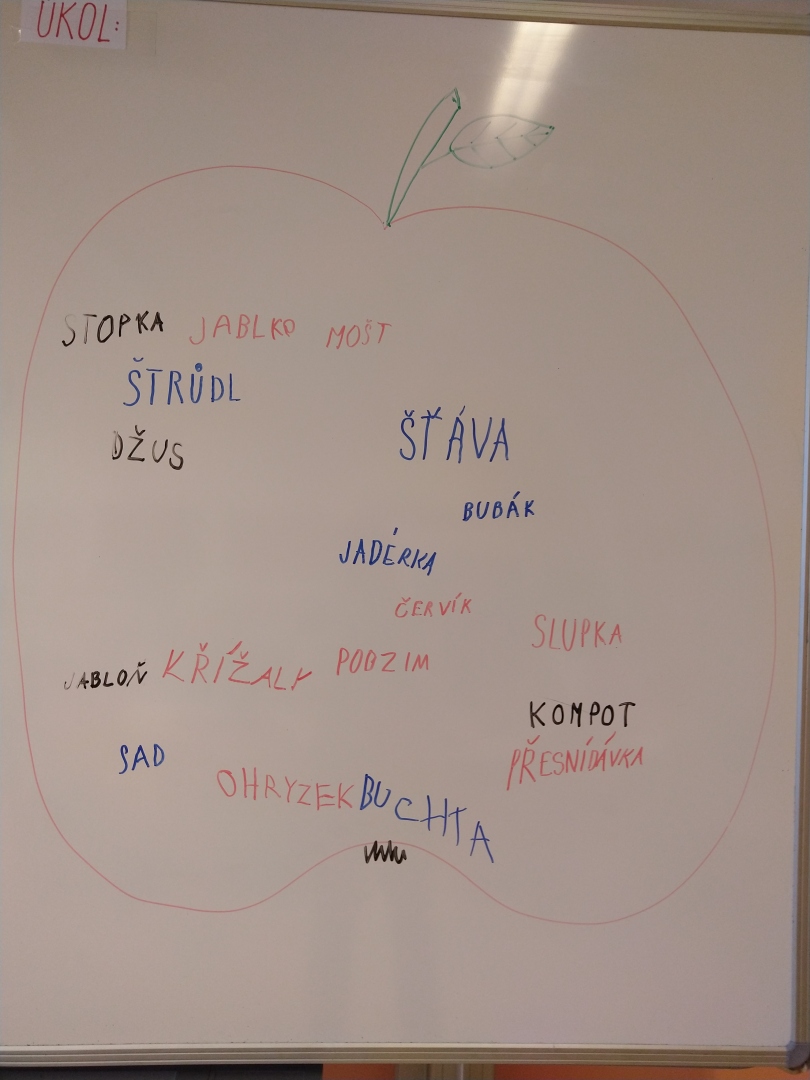 ÚKOL:
STOPKA JABLKO MOŠT
ŠTRŮDL
ŠŤÁVA
DŽUS
BUBÁK
JADÉRKA
ČERVÍK
SLUPKA
JABLOŇ KŘÍŽALY PODZIM
KOMPOT
SAD
PŘESNÍDÁVKA
OHRYZEK BUCHTA